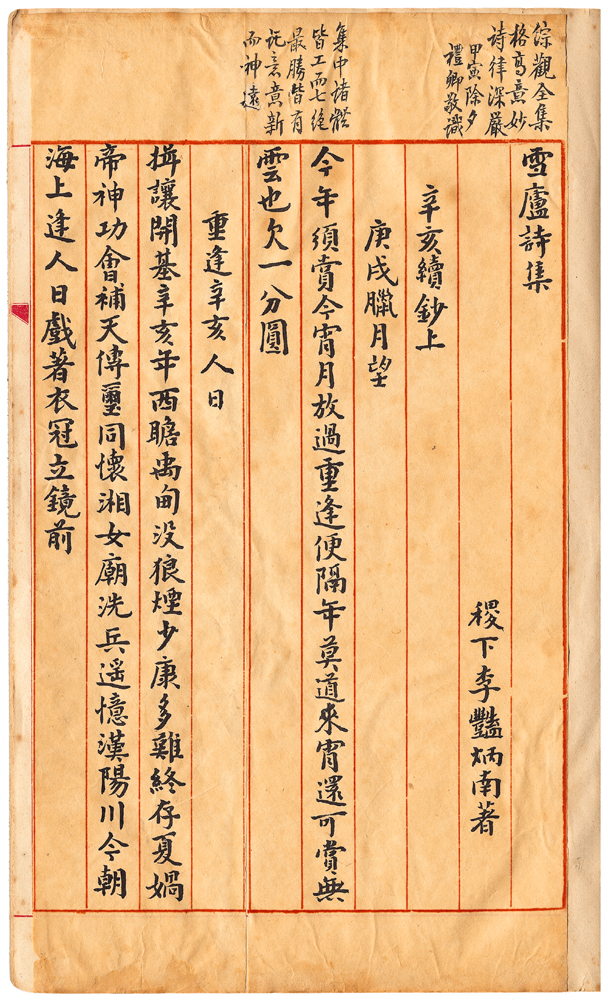 綜觀全集
格高意妙
詩律深嚴
甲寅除夕
禮卿敬識
集中諸體
皆工而七絕
最勝皆有
託意意新
而神遠
雪廬詩集
稷下李豔炳南著
辛亥續鈔上
庚戌臘月望
今年須賞今宵月放過重逢便隔年莫道來宵還可賞無
雲也欠一分圓
重逢辛亥人日
揖讓開基辛亥年西瞻禹甸没狼煙少康多難終存夏媧
帝神功會補天傳璽同懷湘女廟洗兵遥憶漢陽川今朝
海上逢人日戲著衣冠立鏡前